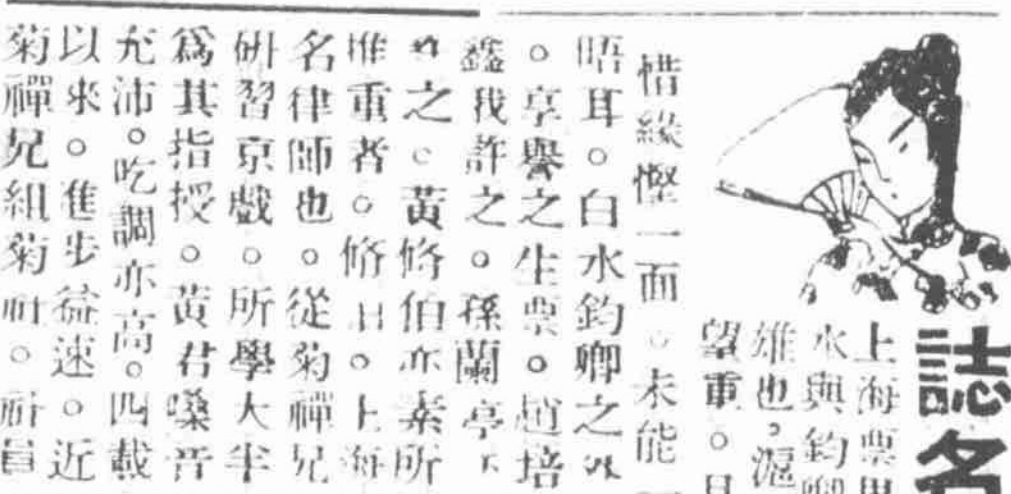 誌名
上海票
水與鈞卿
雄也。滬
望重。
惜緣慳一面。未能
晤耳。白水鈞卿之外
。享譽之生票。趙培
鑫我許之。孫蘭亭
之。黃脩伯亦素所
推重者。脩伯。上海
名律師也。從菊禪兄
研習京戲。所學大半
爲其指授。黃君嗓音
充沛。吃調亦高。四載
以來。進步益速。近
菊禪兄組菊社。社員